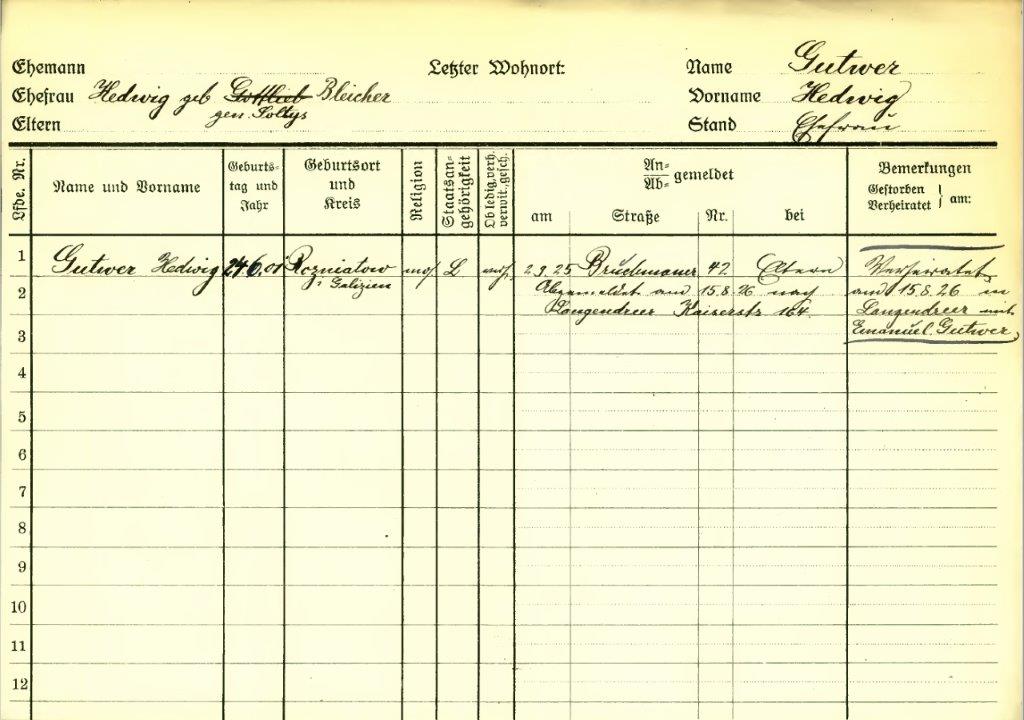 Ehemann
Letzter Wohnort:
Name Gutwer
Ehefrau Hedwig geb Gottlieb Bleicher
gen. Soltys
Vorname Hedwig
Eltern
Stand Ehefrau
Lfde. Nr.
Name und Vorname
Geburts-
tag und
Jahr
Geburtsort
und
Kreis
Religion
Staatsan-
gehörigkeit
Ob ledig, verh.
verwit., gesch.
An-
Ab- gemeldet
am Straße Nr. bei
Bemerkungen
Gestorben
Verheiratet am:
1 Gutwer Hedwig 24.6.01 Rozniatow mos 2.9.25 Bruchmauer 42 Eltern
i Galizien
Abgemeldet am 15.8.26 nach
Langendreer Kaiserstr 164.
Verheiratet
am 15.8.26 in
Langendreer mit
Emanuel Gutwer
2
3
4
5
6
7
8
9
10
11
12